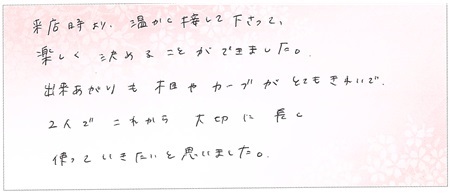 来店時より、温かく接して下さって、
楽しく決めることができました。
出来あがりも木目やカーブがとてもきれいで、
2人でこれから大切に長く
使っていきたいと思いました。